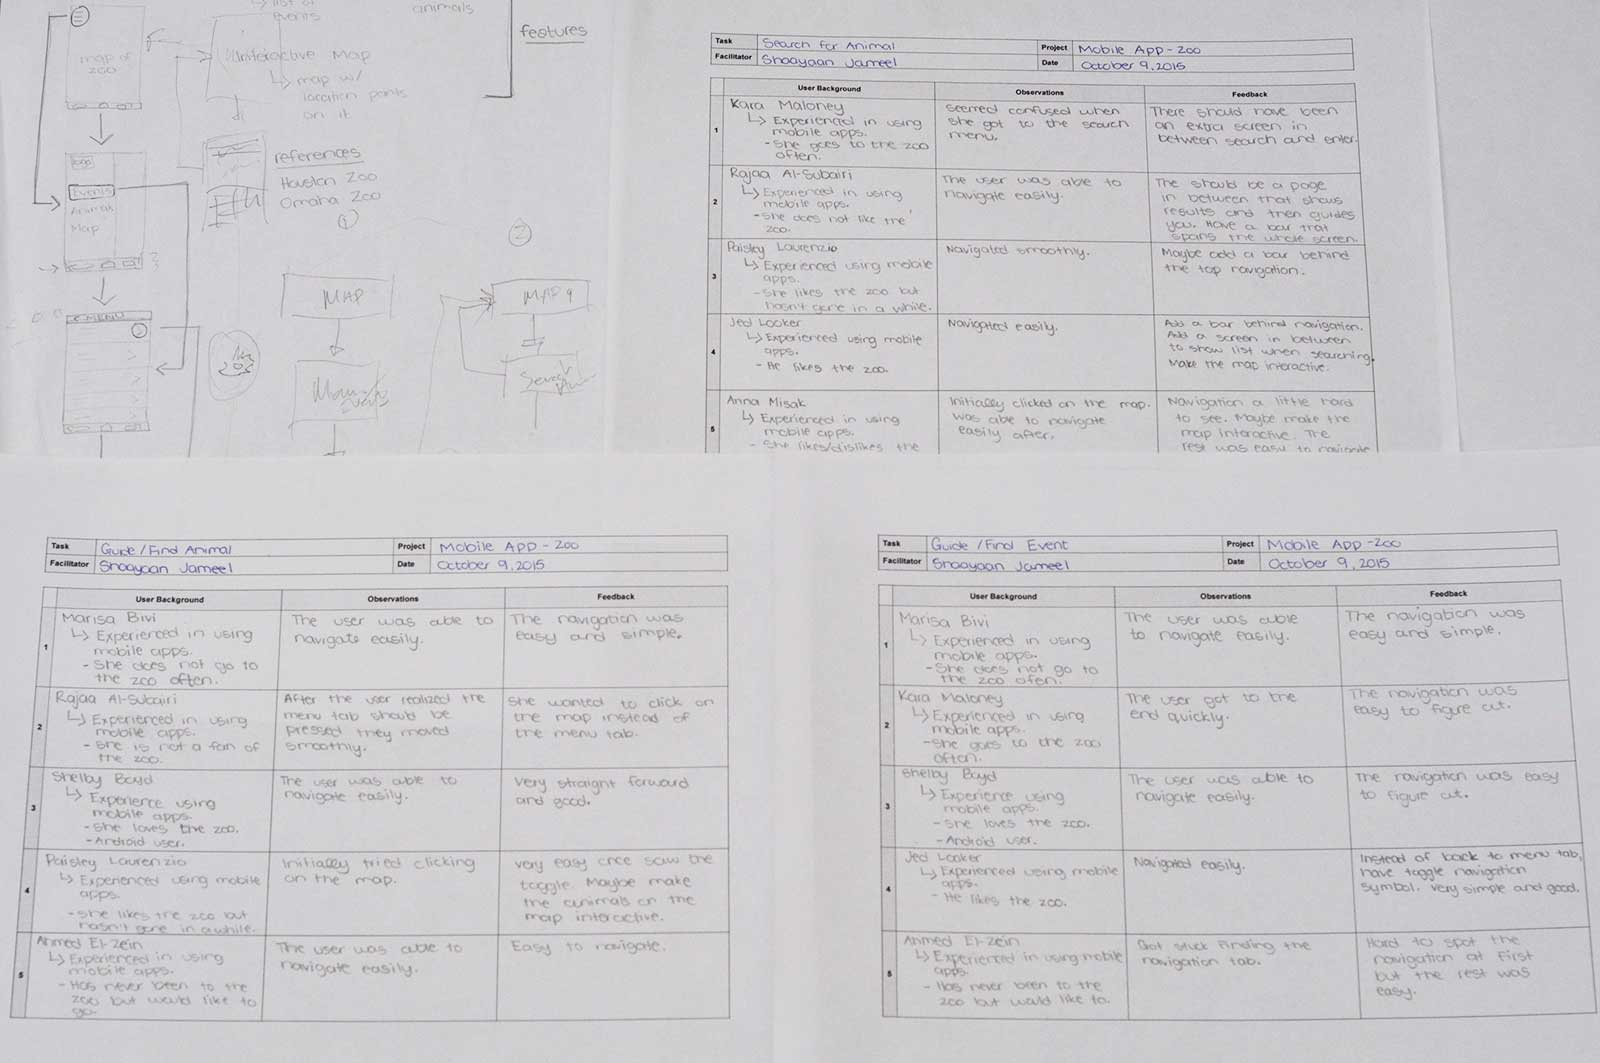 list of
events
animals
features
map of
zoo
Interactive Map
↳ map w/
location points
on it
logo
Events
Animals
Map
references
Houston Zoo
Omaha Zoo
①
②
MENU
MAP
MAP
Task Search for Animal Project Mobile App - Zoo
Facilitator Shaayaan Jameel Date October 9, 2015
User Background Observations Feedback
1
Kara Maloney
↳ Experienced in using
mobile apps.
- She goes to the zoo
often.
Seemed confused when
she got to the search
menu.
There should have been
an extra screen in
between search and enter.
2
Rajaa Al-Subairi
↳ Experienced in using
mobile apps.
- She does not like the
zoo.
The user was able to
navigate easily.
The should be a page
in between that shows
results and then guides
you. Have a bar that
spans the whole screen.
3
Paisley Laurenzio
↳ Experienced using mobile
apps.
- She likes the zoo but
hasn't gone in a while.
Navigated smoothly.
Maybe add a bar behind
the top navigation.
4
Jed Looker
↳ Experienced using mobile
apps.
- He likes the zoo.
Navigated easily.
Add a bar behind navigation.
Add a screen in between
to show list when searching.
Make the map interactive.
5
Anna Misak
↳ Experienced in using
mobile apps.
- She likes/dislikes the
Initially clicked on the map.
Was able to navigate
easily after.
Navigation a little hard
to see. Maybe make the
map interactive. The
rest was easy to navigate
Task Guide / Find Animal Project Mobile App - Zoo
Facilitator Shaayaan Jameel Date October 9, 2015
User Background Observations Feedback
1
Marisa Bivi
↳ Experienced in using
mobile apps.
- She does not go to
the zoo often.
The user was able to
navigate easily.
The navigation was
easy and simple.
2
Rajaa Al-Subairi
↳ Experienced in using
mobile apps.
- She is not a fan of
the zoo.
After the user realized the
menu tab should be
pressed they moved
smoothly.
She wanted to click on
the map instead of
the menu tab.
3
Shelby Boyd
↳ Experience using
mobile apps.
- She loves the zoo.
- Android user.
The user was able to
navigate easily.
Very straight forward
and good.
4
Paisley Laurenzio
↳ Experienced using mobile
apps.
- She likes the zoo but
hasn't gone in a while.
Initially tried clicking
on the map.
Very easy once saw the
toggle. Maybe make
the animals on the
map interactive.
5
Ahmed El-Zein
↳ Experienced in using
mobile apps.
- Has never been to the
zoo but would like to
go.
The user was able to
navigate easily.
Easy to navigate.
Task Guide / Find Event Project Mobile App - Zoo
Facilitator Shaayaan Jameel Date October 9, 2015
User Background Observations Feedback
1
Marisa Bivi
↳ Experienced in using
mobile apps.
- She does not go to
the zoo ofen.
The user was able
to navigate easily.
The navigation was
easy and simple.
2
Kara Maloney
↳ Experienced in using
mobile apps.
- She goes to the zoo
often.
The user got to the
end quickly.
The navigation was
easy to figure out.
3
Shelby Boyd
↳ Experience using
mobile apps.
- She loves the zoo.
- Android user.
The user was able to
navigate easily.
The navigation was easy
to figure out.
4
Jed Looker
↳ Experienced using mobile
apps.
- He likes the zoo.
Navigated easily.
Instead of back to menu tab,
have toggle navigation
symbol. Very simple and good.
5
Ahmed El-Zein
↳ Experienced in using mobile
apps.
- Has never been to the
zoo but would like to.
Got stuck finding the
navigation tab.
Hard to spot the
navigation at first
but the rest was
easy.